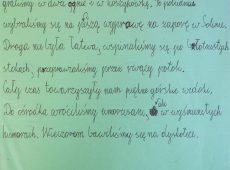 graliśmy w dwa ognie i w koszykówkę. Po południu
wybraliśmy się na pieszą wyprawę na zaporę w Solinie.
Droga nie była łatwa, wspinaliśmy się po błotnistych
stokach, przeprawialiśmy przez rwący potok.
Cały czas towarzyszyły nam piękne górskie widoki.
Do ośrodka wróciliśmy umorusani, ale w wyśmienitych
humorach. Wieczorem bawiliśmy się na dyskotece.